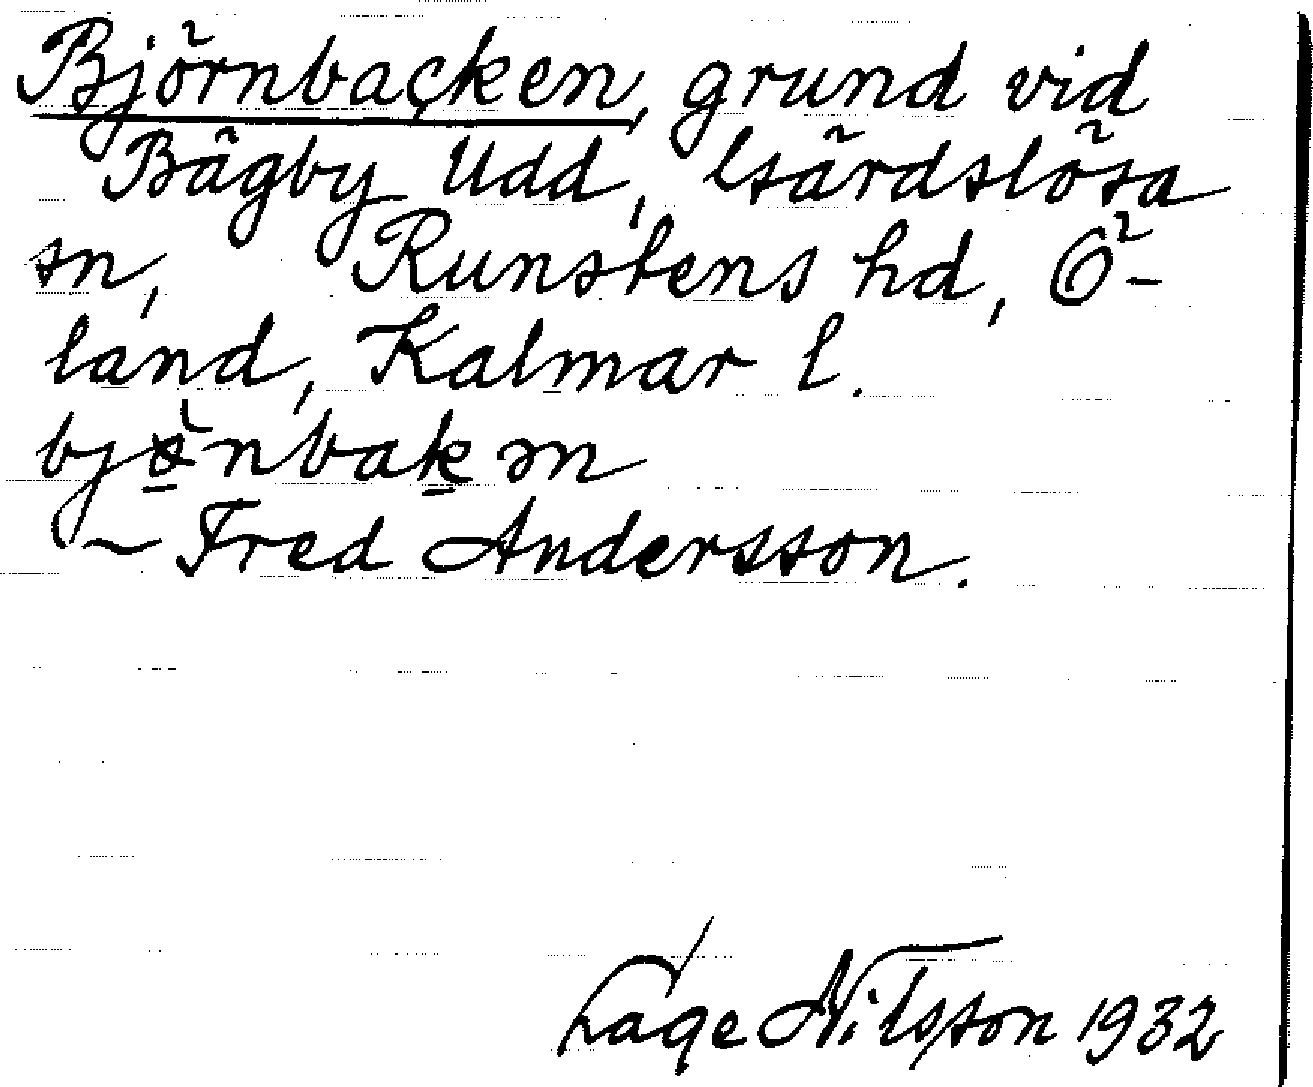 Björnbacken, grund vid
Bägby Udd, Gärdslösa
sn, Runstens hd, Ö-
land, Kalmar l.
~ Fred Andersson.
Låge Nilsson 1932